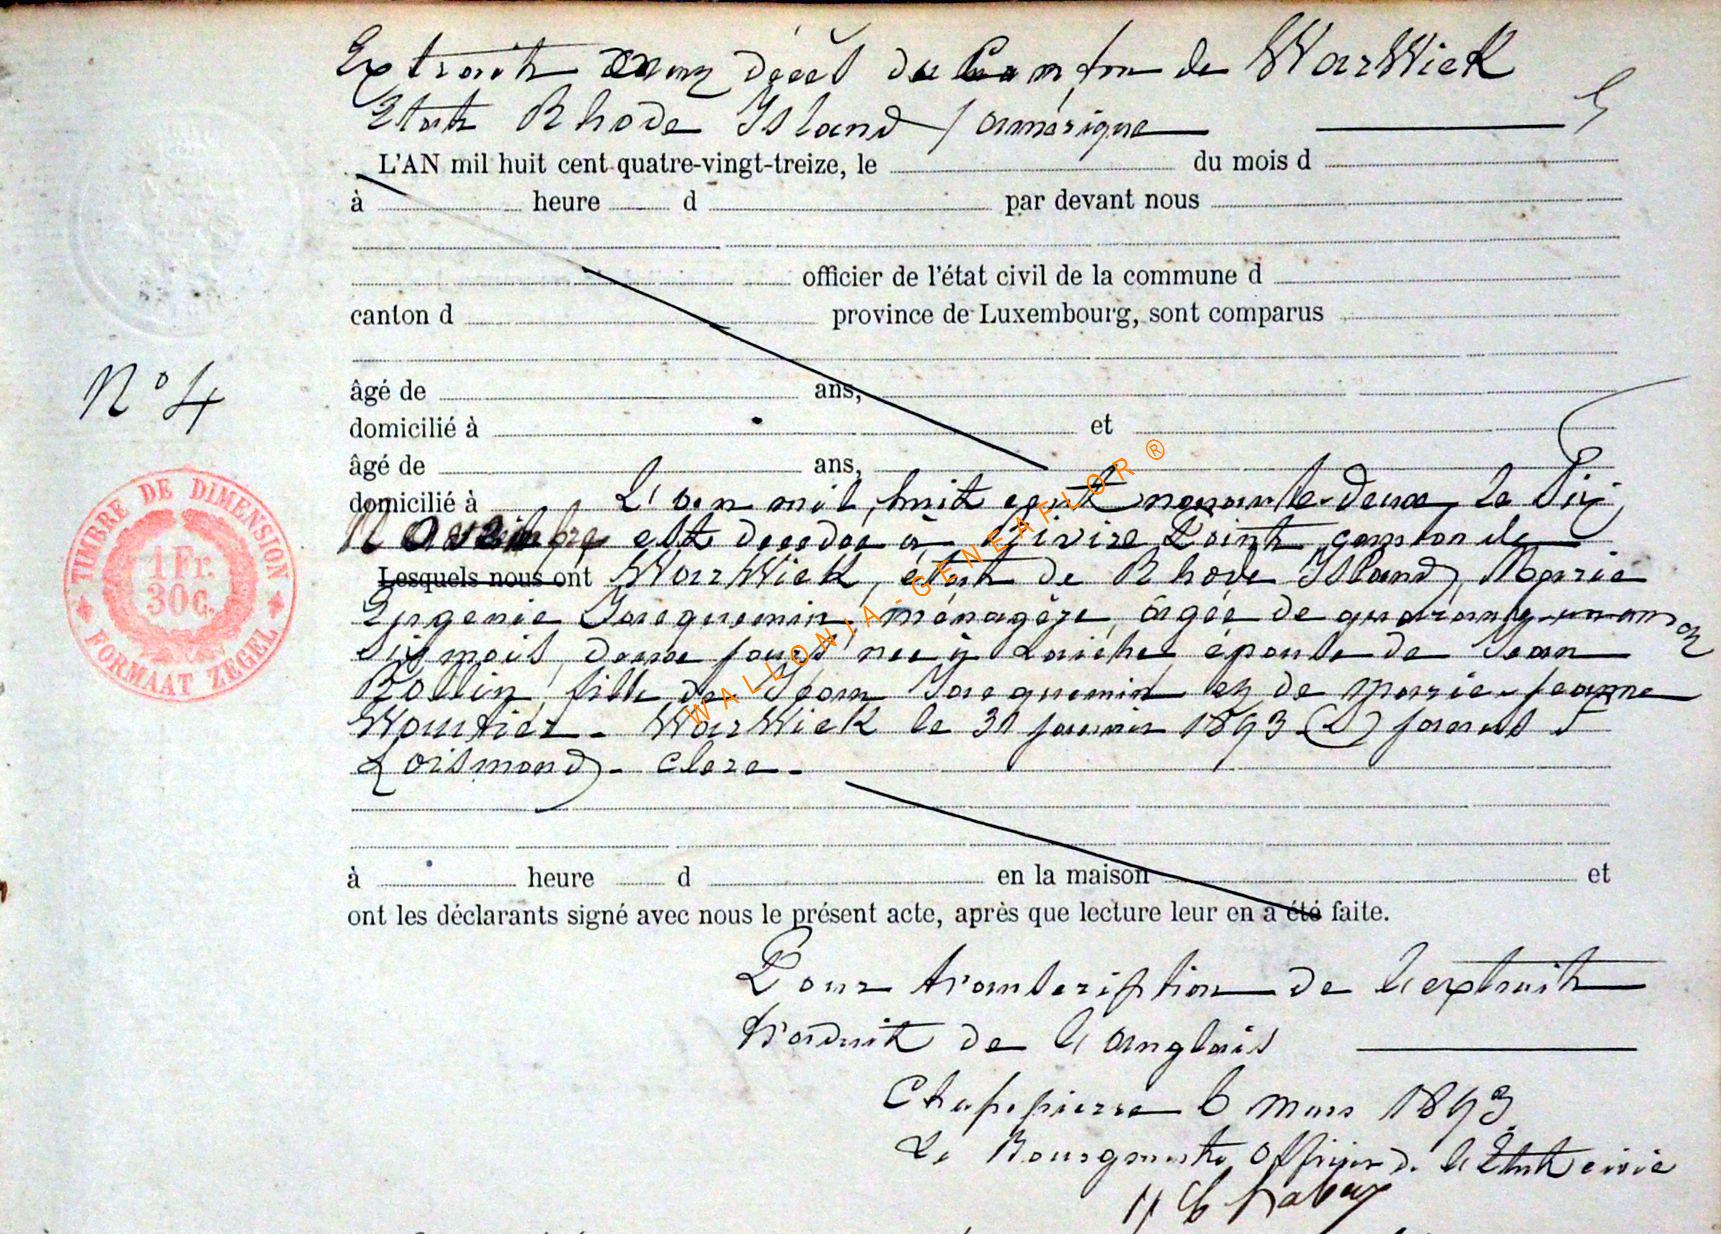 Extrait aux décès du Canton de WarWick
Etat Rhode Island / amérique
L'AN mil huit cent quatre-vingt-treize, le du mois d
à heure d par devant nous
officier de l'état civil de la commune d
canton d province de Luxembourg, sont comparus
N° 4
âgé de ans,
domicilié à et
âgé de ans,
domicilié à L'an mil huit cent nonante-deux le Six
Novembre est décédée à Rivire Point, canton de
Lesquels nous ont WarWick, état de Rhode Island, Marie
Eugenie Jacquemin, ménagère, âgée de quarante-un ans
six mois, douze jours née à Laiche, épouse de Jean
Rollin, fille de Jean Jacquemin et de Marie-Jeanne
WarWick le 31 janvier 1893 (s) James T
Clerc
à heure d en la maison et
ont les déclarants signé avec nous le présent acte, après que lecture leur en a été faite.
Pour transcription de l'extrait
traduit de l'anglais
Chassepierre 6 mars 1893
Le Bourgmestre Officier de l'Etat civil
TIMBRE DE DIMENSION
1 Fr.
30 C.
FORMAAT ZEGEL
WALLONIA-GENEAFLOR ®